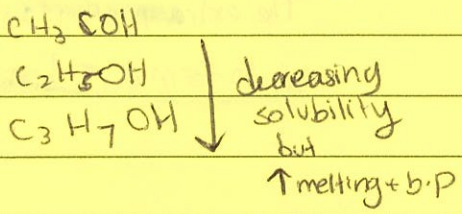 CH3 OH
C2H5OH
C3 H7 OH
decreasing
solubility
but
↑ melting + b.p